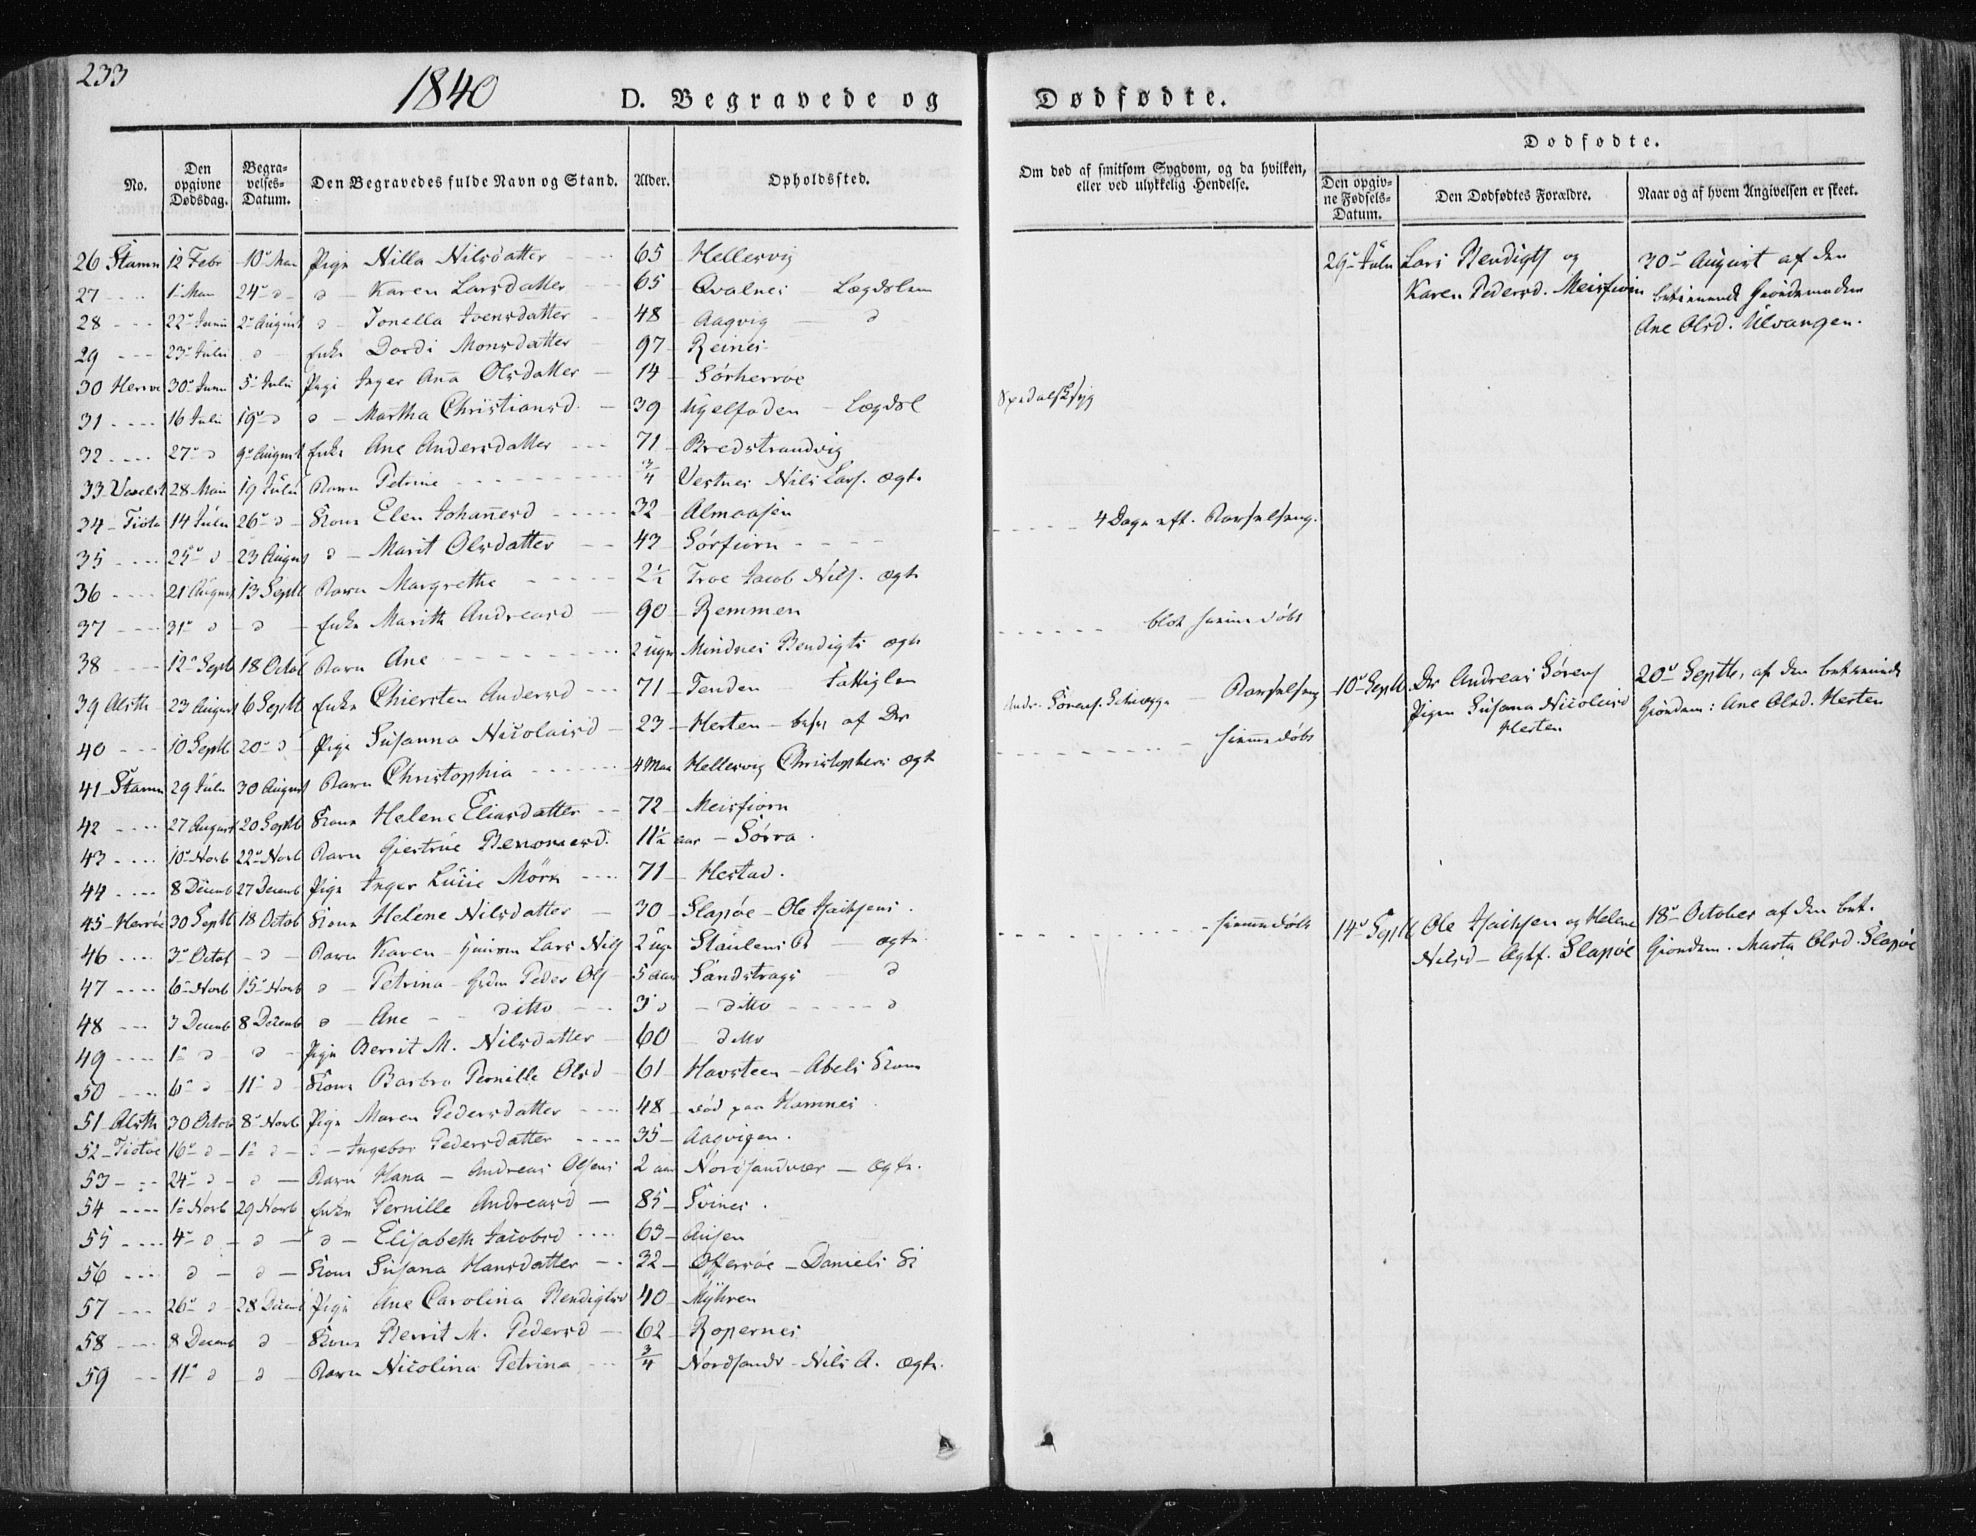 233
1840
D. Begravede og Dødfødte.
No.
Den opgivne Dødsdag.
Begravelses-Datum.
Den Begravedes fulde Navn og Stand.
Alder.
Opholdssted.
Om død af smitsom Sygdom, og da hvilken, eller ved ulykkelig Hendelse.
Dødfødte.
Den opgivne Fødsels-Datum.
Den Dødfødtes Forældre.
Naar og af hvem Angivelsen er skeet.
26 Stamn 12 Febr 10 Mai Pige Nilla Nilsdatter 65 Hellesvig
27 1 Mai 24 d d Karen Larsdatter 65 Qvalnes Lægdslem
28 22 Juni 2 August d Jonella Joensdatter 48 Aagvig d
29 23 Juli d Enke Dordi Monsdatter 97 Reines
30 Herrøe 30 Juni 5 Juli Pige Inger Anna Olsdatter 14 Sørherrøe
31 16 Juli 19 d d Martha Christiansd. 39 Ugelfoden Lægdsl Spedalsksyg
32 27 d 9 August Enke Ane Andersdatter 71 Bredstrandvig
33 28 Mai 19 Juli Barn Petrine 3/4 Vestnes Nils Lars. ægte
34 Tiøtø 14 Juli 26 d Kone Elen Johannesd 32 Almaasen 4 Dage eft. Barselseng.
35 25 d 23 August d Marit Olsdatter 43 Sørfiorn
36 21 August 13 Septb Barn Margrethe 2 1/2 Troe Jacob Nils. ægte
37 31 d d Enke Marith Andreasd 90 Remmen
38 12 Septb 18 Octob Barn Ane 2 uger Mindnes Bendigts ægte blot hiemedøbt
39 Alsth 23 August 6 Septb Enke Chiersten Andersd 71 Tenden Fattiglem
40 10 Septb 20 d Pige Susanna Nicolaisd 23 Herten besv af Dr Andr. Sørens. Barselseng
41 Stamn 29 Juli 30 August Barn Christophia 4 Maa Hellesvig Christophers ægte hiemmedøbt
42 27 August 20 Septb Kone Helene Eliasdatter 72 Meisfiorn
43 10 Novb 22 Novb Barn Giertrue 11 1/2 aar Sørra
44 8 Decemb 27 Decemb Pige Inger Lucie Mörk 71 Hestad.
45 Herrøe 30 Septb 18 Octob Kone Helene Nilsdatter 30 Slapøe Ole
46 3 Octob d Barn Karen Lars Nils 2 uger ægte. hiemmedøbt
47 6 Novb 15 Novb d Petrina Peder Ols 5 aar Sandstrags d
48 3 Decemb 8 Decemb d Ane ditto 3 d ditto d
49 1 d d Pige Berrit M. Nilsdatter 60 ditto
50 6 d 11 d Kone Barbro Pernille Olsd 61 Havsteen Abels Kone
51 Alsth 30 Octob 8 Novb Pige Maren Pedersdatter 48 død paa Hamnes
52 Tiøtøe 16 d 1 d d Ingebor Pedersdatter 35 Aagvigen.
53 24 d d Barn Hana Andreas Olsens 2 aar Nordsandvær ægte.
54 1 Novb 29 Novb Enke Pernille Andreasd 85 Svines.
55 4 d d d Elisabeth Jacobsd 63 Ausen
56 d d Kone Susana Hansdatter 32 Offersøe Daniels
57 26 d 28 Decemb Pige Ane Carolina Bendigtsd 40 Myhren
58 8 Decemb d Kone Berrit M. Pedersd 62 Kopernes
59 11 d d Barn Nicolina Petrina 3/4 Nordsandv Nils A. ægte.
29 Juli Lars Bendigts og
Karen Pedersd. Meisfiorn
30 August af den
Giordemoder
Ane Olsd. Ulvangen.
10 Septb Dr Andreas Sørens
Pigen Susana Nicolaisd
Herten
20 Septb. af den
Giordem: Ane Olsd. Herten
14 Septb Ole og Helene
Nilsd Slapøe
18 October af den
Giordem. Marta Olsd. Slapøe